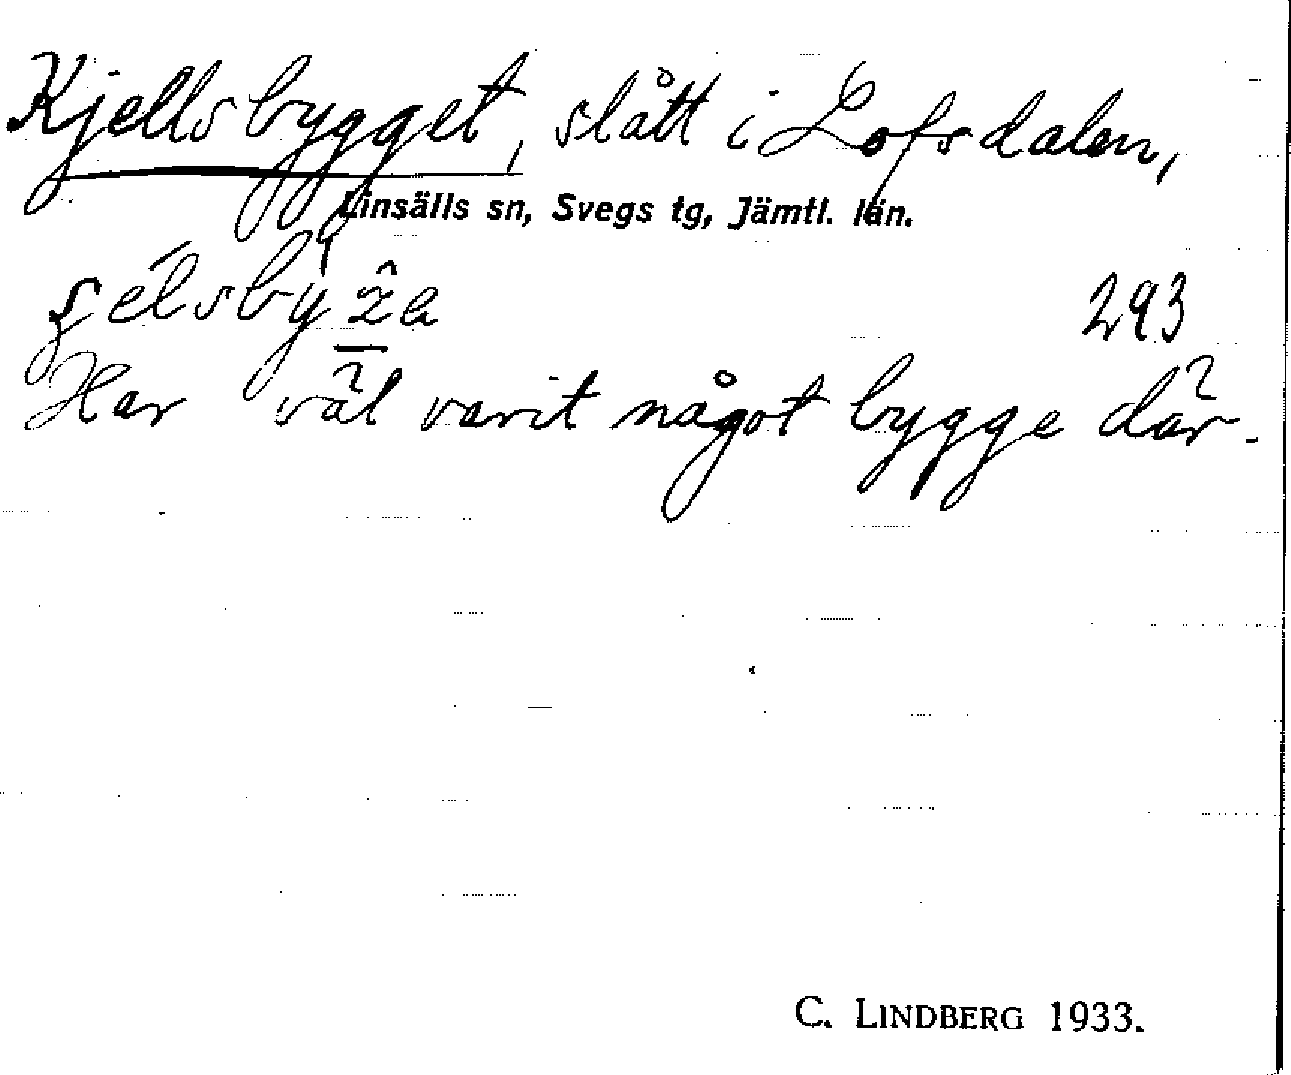 Kjellsbygget, slått i Lofsdalen,
Linsälls sn, Svegs tg, Jämtl. län.
293
Har väl varit något bygge där.
C. LINDBERG 1933.